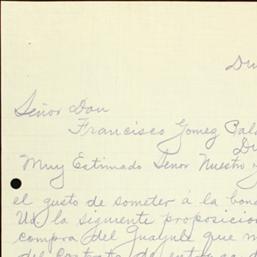 Du
Señor Don
Francisco Gomez Pala
Du
"Muy Estimado Senor Nuestro y
el gusto de someter á la bond
Ud la siguiente proposicion
compra del Guayule que
del Contrato de